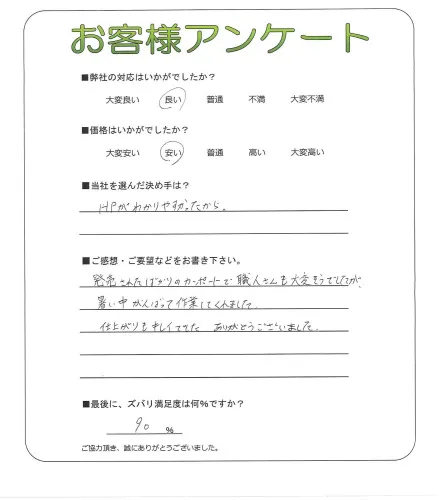 お客様アンケート
■弊社の対応はいかがでしたか?
大変良い 良い 普通 不満 大変不満
■価格はいかがでしたか?
大変安い 安い 普通 高い 大変高い
■当社を選んだ決め手は?
HPがわかりやすかったから。
■ご感想・ご要望などをお書き下さい。
発売されたばかりのカーポートで職人さんも大変そうでしたが、
暑い中がんばって作業してくれました。
仕上がりも ありがとうございました。
■最後に、ズバリ満足度は何%ですか?
90 %
ご協力頂き、誠にありがとうございました。